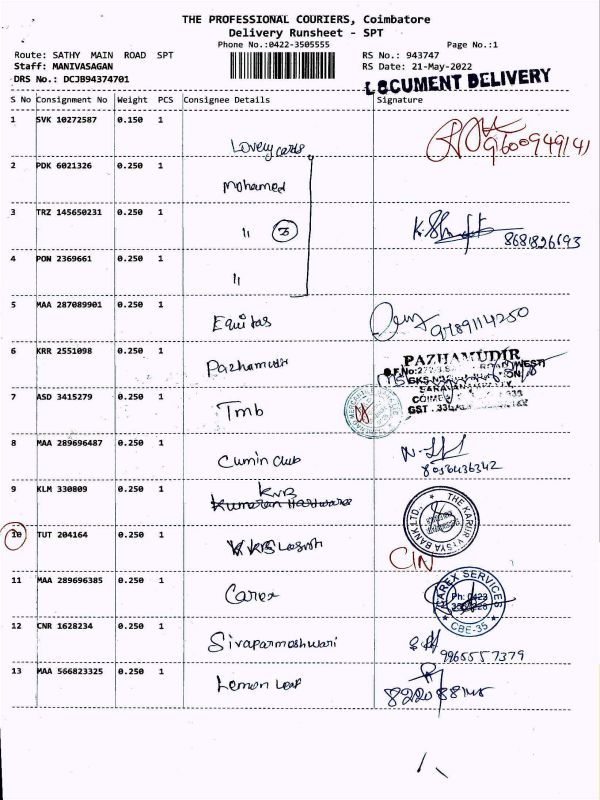 THE PROFESSIONAL COURIERS, Coimbatore
Delivery Runsheet - SPT
Phone No.:0422-3505555
Page No.:1
Route: SATHY MAIN ROAD SPT
RS No.: 943747
Staff: MANIVASAGAN
RS Date: 21-May-2022
DRS No.: DCJB94374701
LOCUMENT DELIVERY
S No Consignment No Weight PCS Consignee Details Signature
1 SVK 10272587 0.150 1
Lovely cards 9600949141
2 PDK 6021326 0.250 1
Mohamed
3 TRZ 145650231 0.250 1
" 3 8681826693
4 PON 2369661 0.250 1
"
5 MAA 287089901 0.250 1
Equitas 9789114250
6 KRR 2551098 0.250 1
Pazhamudir PAZHAMUDIR
7 ASD 3415279 0.250 1
Tmb
COIMB
GST . 33
8 MAA 289696487 0.250 1
Cumin Club 8056436342
9 KLM 330809 0.250 1
KVB
Kumaran Hardware
THE KARUR VYSYA BANK LTD.,
10 TUT 204164 0.250 1
CIN
11 MAA 289696385 0.250 1
Carex
CAREX SERVICES
Ph: 0422
CBE-35
12 CNR 1628234 0.250 1
Sivaparmeshwari 9965557379
13 MAA 566823325 0.250 1
Lemon Leaf